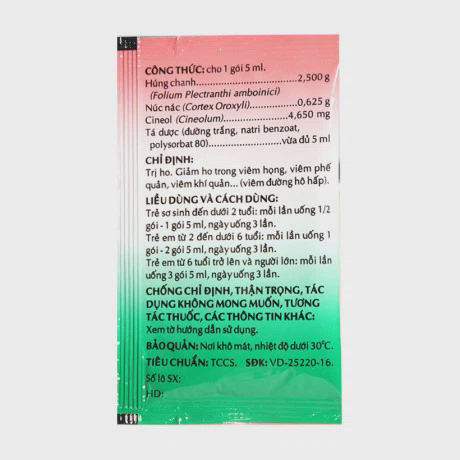 CÔNG THỨC: cho 1 gói 5 ml.
Húng chanh...............................2,500 g
(Folium Plectranthi amboinici)
Núc nác (Cortex Oroxyli)...............0,625 g
Cineol (Cineolum)......................4,650 mg
Tá dược (đường trắng, natri benzoat,
polysorbat 80)......................vừa đủ 5 ml
CHỈ ĐỊNH:
Trị ho. Giảm ho trong viêm họng, viêm phế
quản, viêm khí quản... (viêm đường hô hấp).
LIỀU DÙNG VÀ CÁCH DÙNG:
Trẻ sơ sinh đến dưới 2 tuổi: mỗi lần uống 1/2
gói - 1 gói 5 ml, ngày uống 3 lần.
Trẻ em từ 2 đến dưới 6 tuổi: mỗi lần uống 1
gói - 2 gói 5 ml, ngày uống 3 lần.
Trẻ em từ 6 tuổi trở lên và người lớn: mỗi lần
uống 3 gói 5 ml, ngày uống 3 lần.
CHỐNG CHỈ ĐỊNH, THẬN TRỌNG, TÁC
DỤNG KHÔNG MONG MUỐN, TƯƠNG
TÁC THUỐC, CÁC THÔNG TIN KHÁC:
Xem tờ hướng dẫn sử dụng.
BẢO QUẢN: Nơi khô mát, nhiệt độ dưới 30°C.
TIÊU CHUẨN: TCCS. SĐK: VD-25220-16.
Số lô SX:
HD: